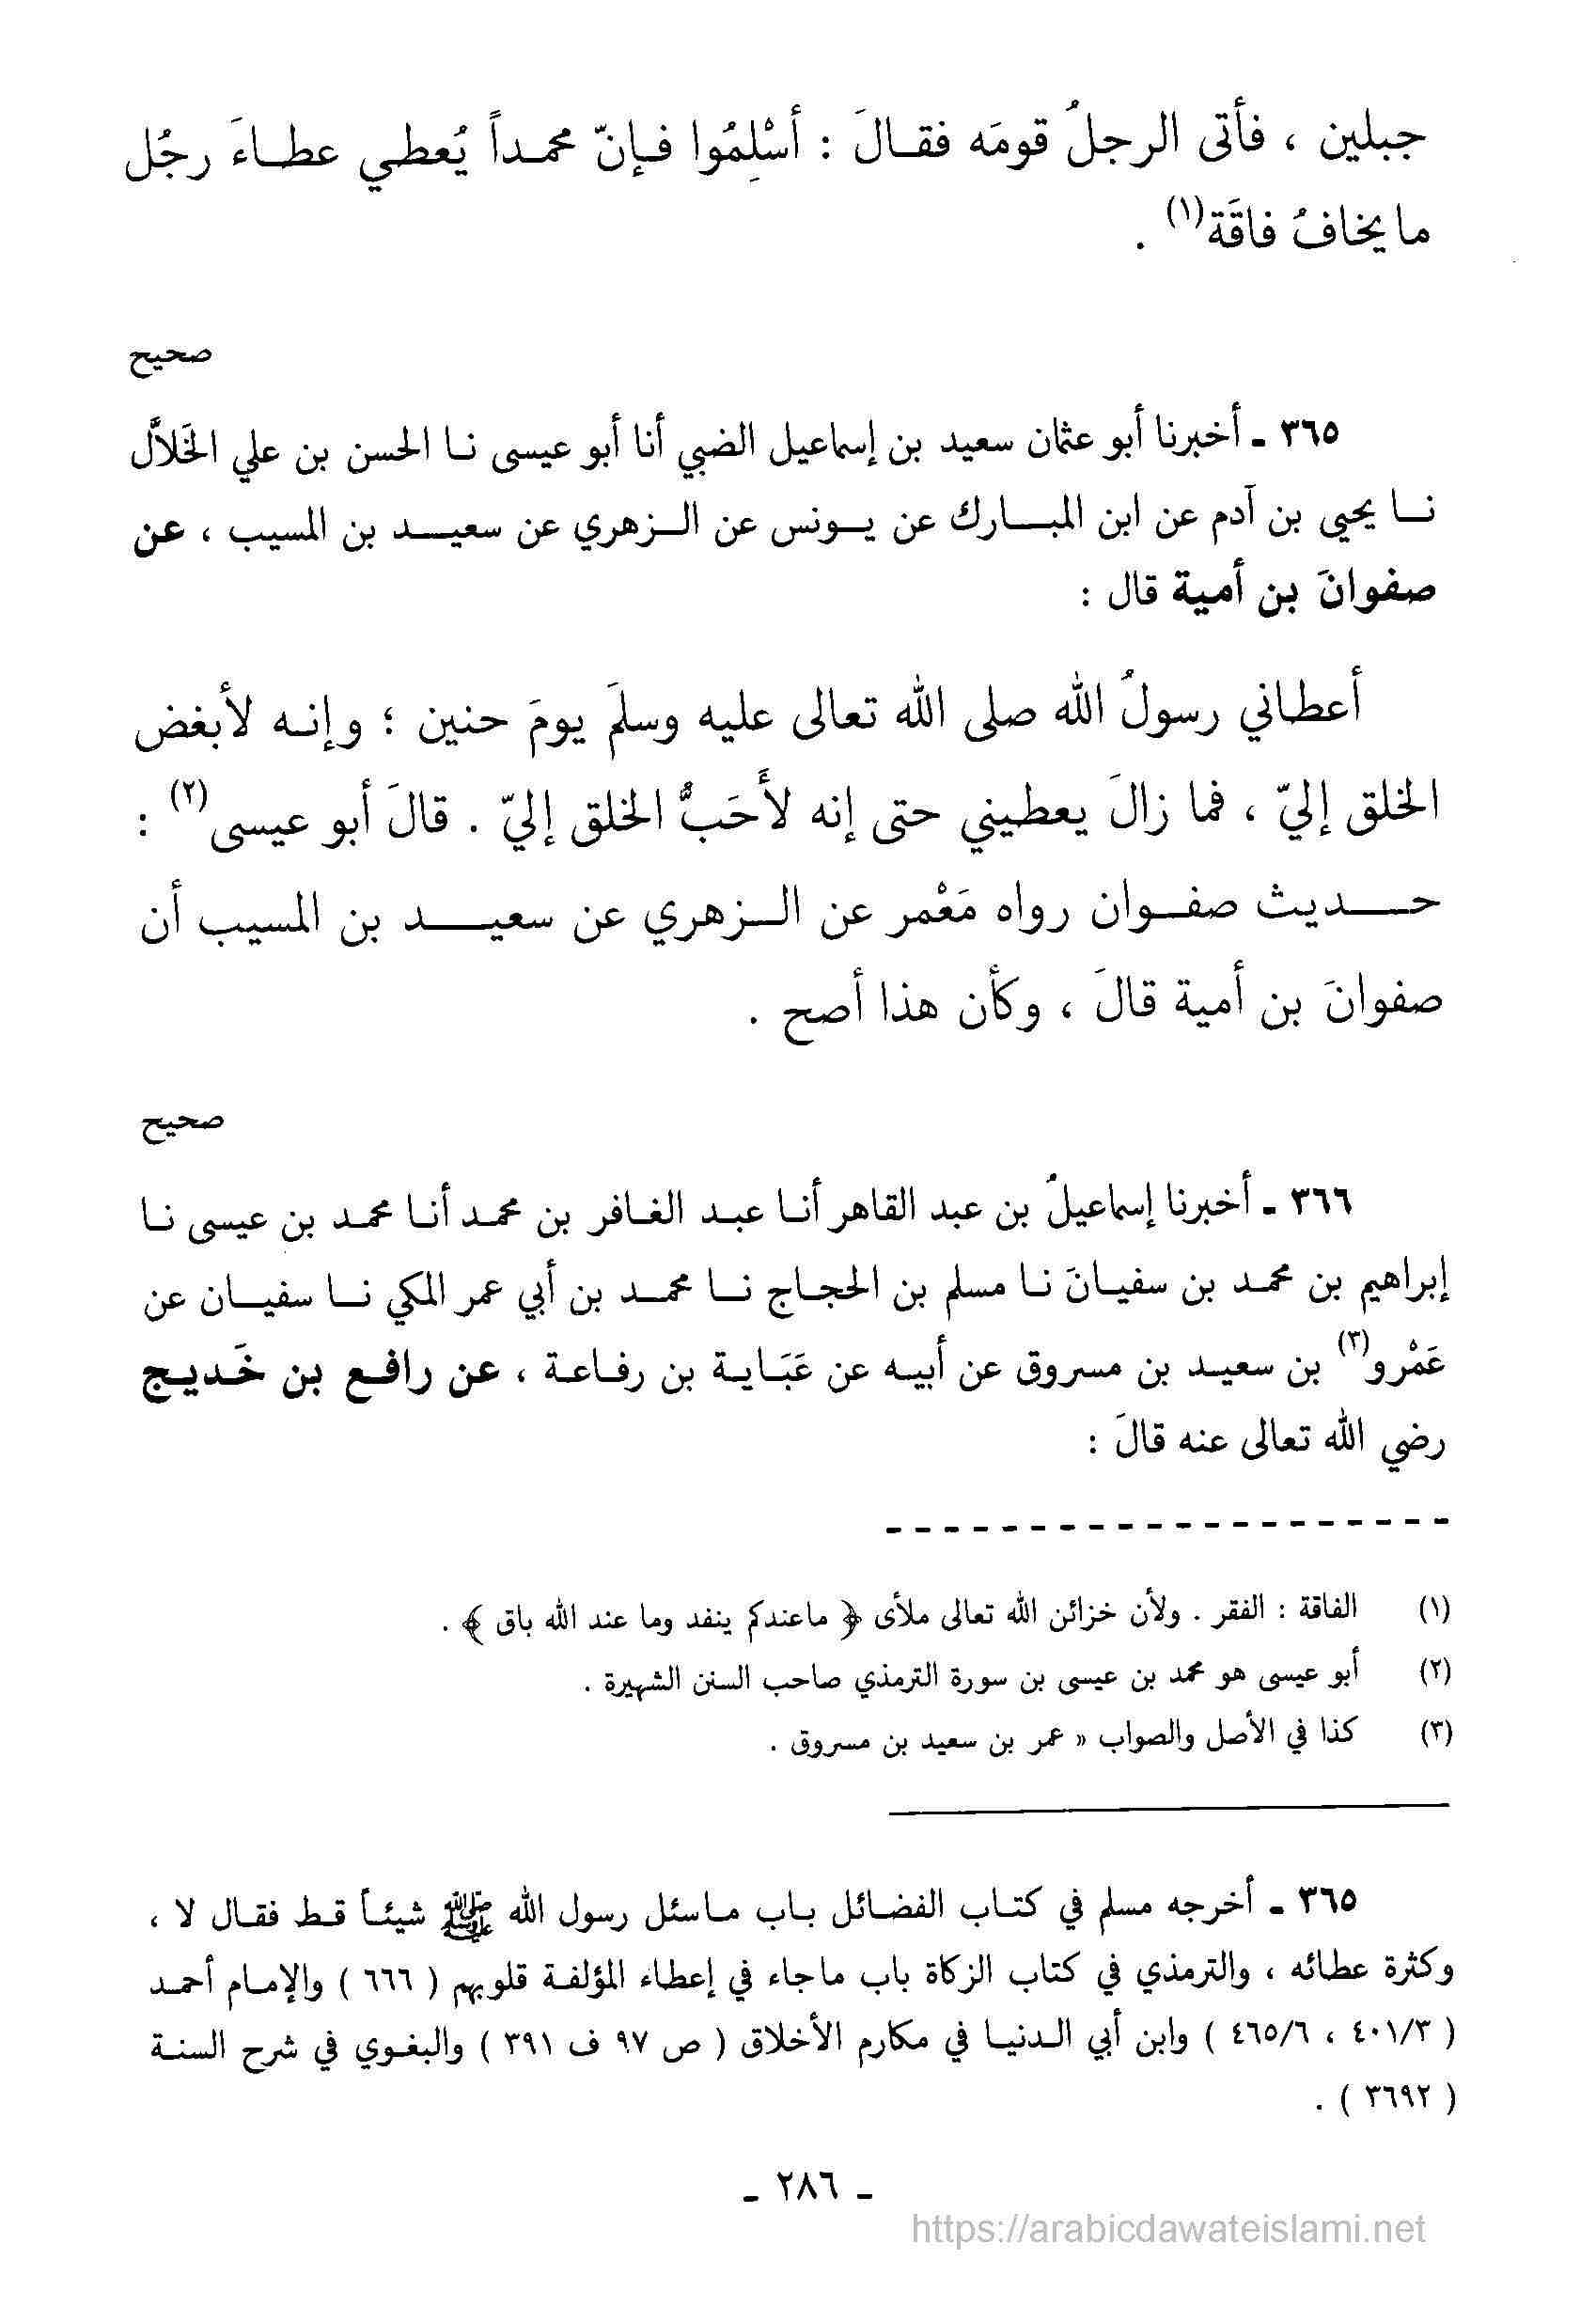 جبلين ، فأتى الرجلُ قومَه فقالَ : أسْلِمُوا فإنّ محمداً يُعطي عطاءَ رجُل
ما يخافُ فاقَة(١) .
صحيح
٣٦٥ ـ أخبرنا أبو عثمان سعيد بن إسماعيل الضبي أنا أبو عيسى نا الحسن بن علي الخَلاَّل
نا يحيى بن آدم عن ابن المبارك عن يونس عن الزهري عن سعيد بن المسيب ، عن
صفوانَ بن أمية قال :
أعطاني رسولُ الله صلى الله تعالى عليه وسلمَ يومَ حنين ؛ وإنه لأبغض
الخلق إليّ ، فما زالَ يعطيني حتى إنه لأَحَبُّ الخلق إليّ . قالَ أبو عيسى(٢) :
حديث صفوان رواه مَعْمر عن الزهري عن سعيد بن المسيب أن
صفوانَ بن أمية قالَ ، وكأن هذا أصح .
صحيح
٣٦٦ ـ أخبرنا إسماعيلُ بن عبد القاهر أنا عبد الغافر بن محمد أنا محمد بن عيسى نا
إبراهيم بن محمد بن سفيانَ نا مسلم بن الحجاج نا محمد بن أبي عمر المكي نا سفيان عن
عَمْرو(٣) بن سعيد بن مسروق عن أبيه عن عَبَاية بن رفاعة ، عن رافع بن خَديج
رضي الله تعالى عنه قالَ :
(١) الفاقة : الفقر . ولأن خزائن الله تعالى ملأى ﴿ ماعندكم ينفد وما عند الله باق ﴾ .
(٢) أبو عيسى هو محمد بن عيسى بن سورة الترمذي صاحب السنن الشهيرة .
(٣) كذا في الأصل والصواب « عمر بن سعيد بن مسروق .
٣٦٥ ـ أخرجه مسلم في كتاب الفضائل باب ماسئل رسول الله ﷺ شيئاً قط فقال لا ،
وكثرة عطائه ، والترمذي في كتاب الزكاة باب ماجاء في إعطاء المؤلفة قلوبهم ( ٦٦٦ ) والإمام أحمد
( ٤٠١/٣ ، ٤٦٥/٦ ) وابن أبي الدنيا في مكارم الأخلاق ( ص ٩٧ ف ٣٩١ ) والبغوي في شرح السنة
( ٣٦٩٢ ) .
ـ ٢٨٦ ـ
https://arabicdawateislami.net